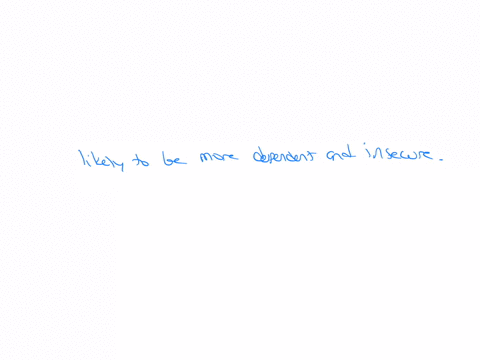 likely to be more dependent and insecure.